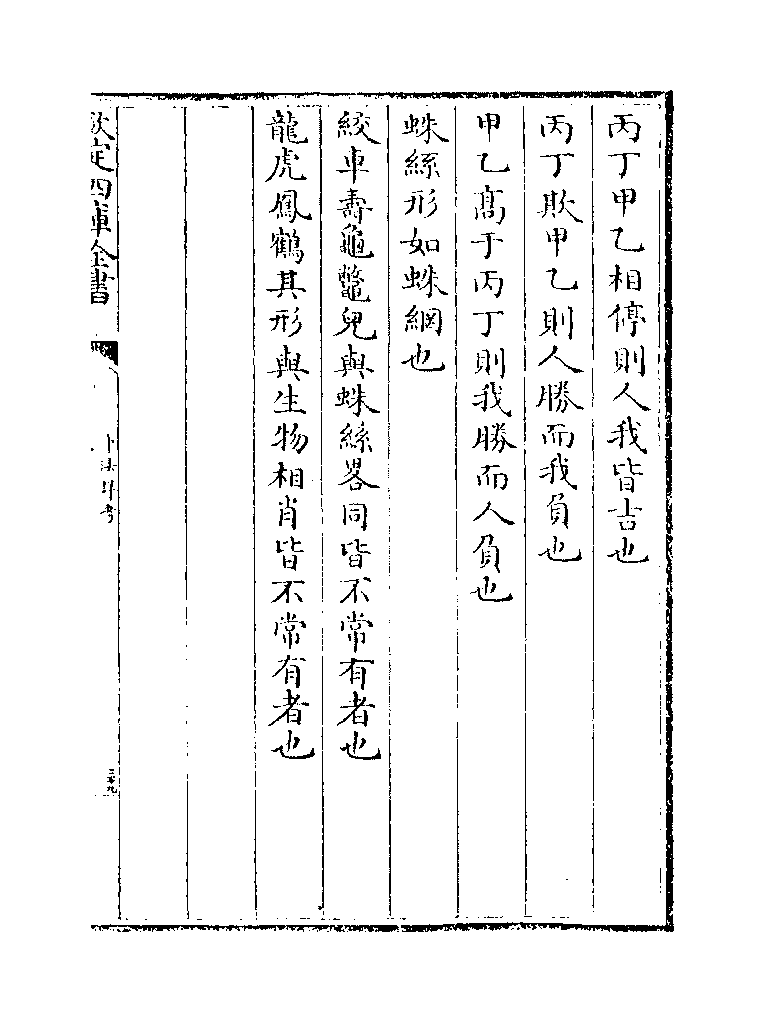 丙丁甲乙相停則人我皆吉也
丙丁欺甲乙則人勝而我負也
甲乙髙于丙丁則我勝而人負也
蛛絲形如蛛網也
絞車壽龜鼈兒與蛛絲畧同皆不常有者也
龍虎鳳鶴其形與生物相肖皆不常有者也
欽定四庫全書
卜法詳考